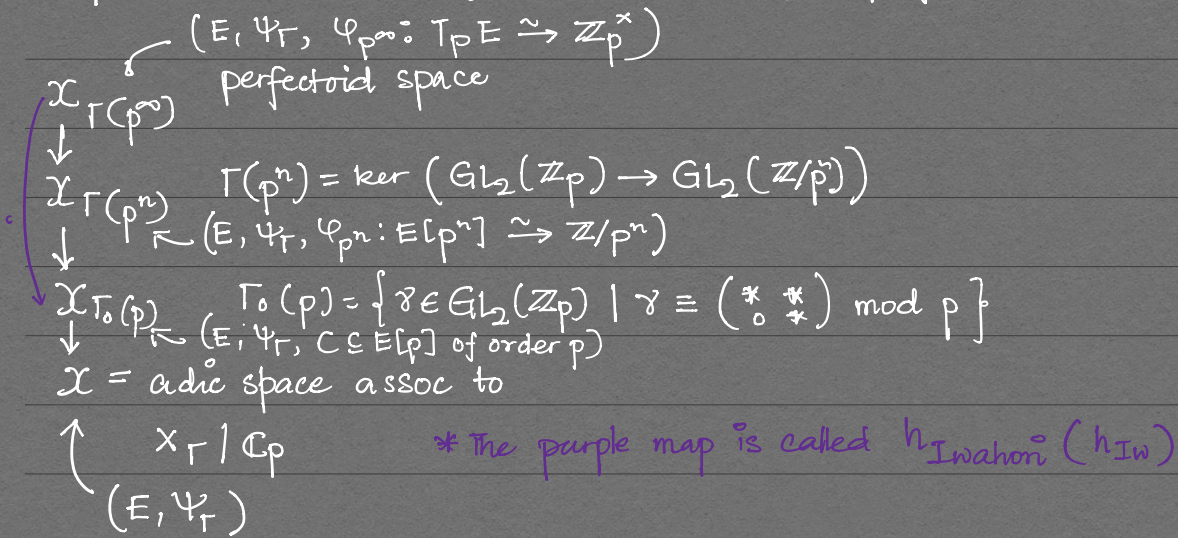 (E, Ψ_Γ, φ_{p^∞} : T_p E ≃→ ℤ_p^×)
𝒳_{Γ(p^∞)} perfectoid space
↓
𝒳_{Γ(p^n)} Γ(p^n) = ker (GL_2(ℤ_p) → GL_2(ℤ/p^n))
↓ (E, Ψ_Γ, φ_{p^n} : E[p^n] ≃→ ℤ/p^n)
𝒳_{Γ_0(p)} Γ_0(p) = {γ ∈ GL_2(ℤ_p) | γ ≡ (* * ; 0 *) mod p}
↓ (E, Ψ_Γ, C ⊆ E[p] of order p)
𝒳 = adic space assoc to
X_Γ / ℂ_p
* The purple map is called h_{Iwahori} (h_{Iw})
(E, Ψ_Γ)